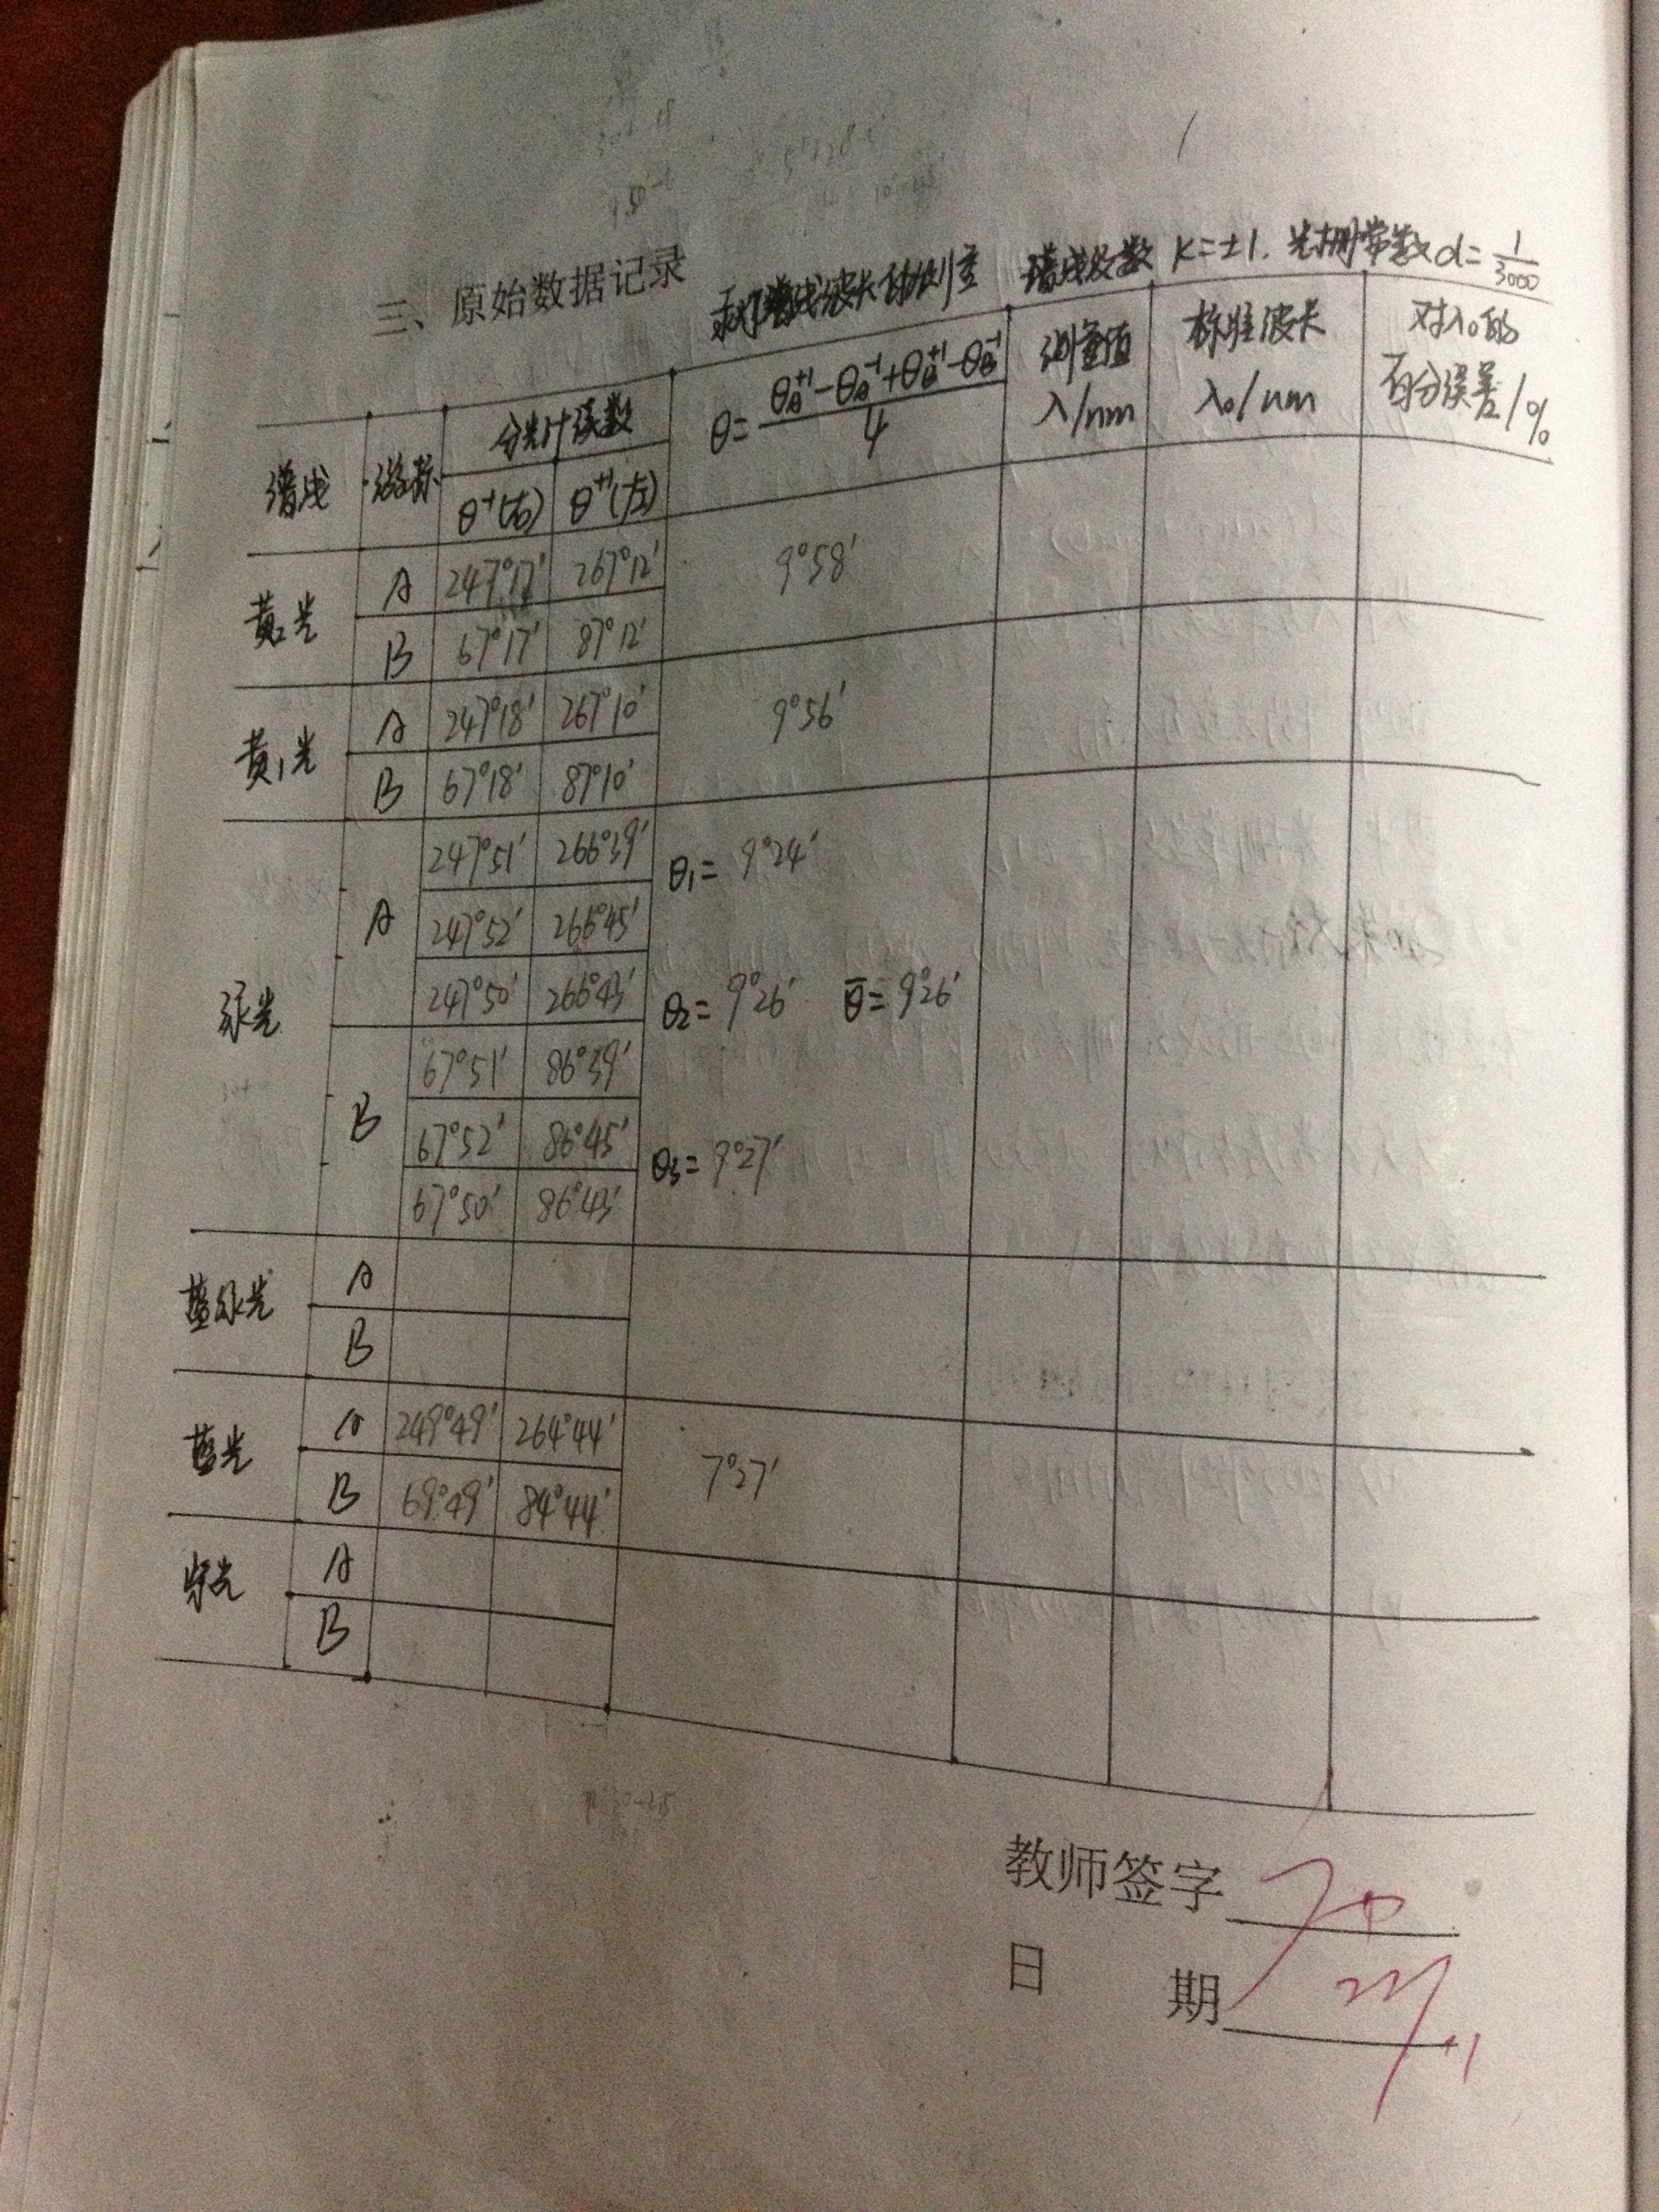 三、原始数据记录
汞灯谱线波长的测量 谱线级数 K=±1. 光栅常数 d=1/3000
谱线 游标 分光计读数 θ=(θA+1-θA-1+θB+1-θB-1)/4 测量值 λ/nm 标准波长 λ₀/nm 对λ₀的百分误差/%
θ-1(右) θ+1(左)
黄2光 A 247°17′ 267°12′ 9°58′
B 67°17′ 87°12′
黄1光 A 247°18′ 267°10′ 9°56′
B 67°18′ 87°10′
绿光 A 247°51′ 266°39′ θ1= 9°24′
247°52′ 266°45′
247°50′ 266°43′ θ2= 9°26′ θ̄= 9°26′
B 67°51′ 86°39′
67°52′ 86°45′ θ3= 9°27′
67°50′ 86°43′
蓝绿光 A
B
蓝光 A 249°49′ 264°44′ 7°27′
B 69°49′ 84°44′
紫光 A
B
教师签字
日 期